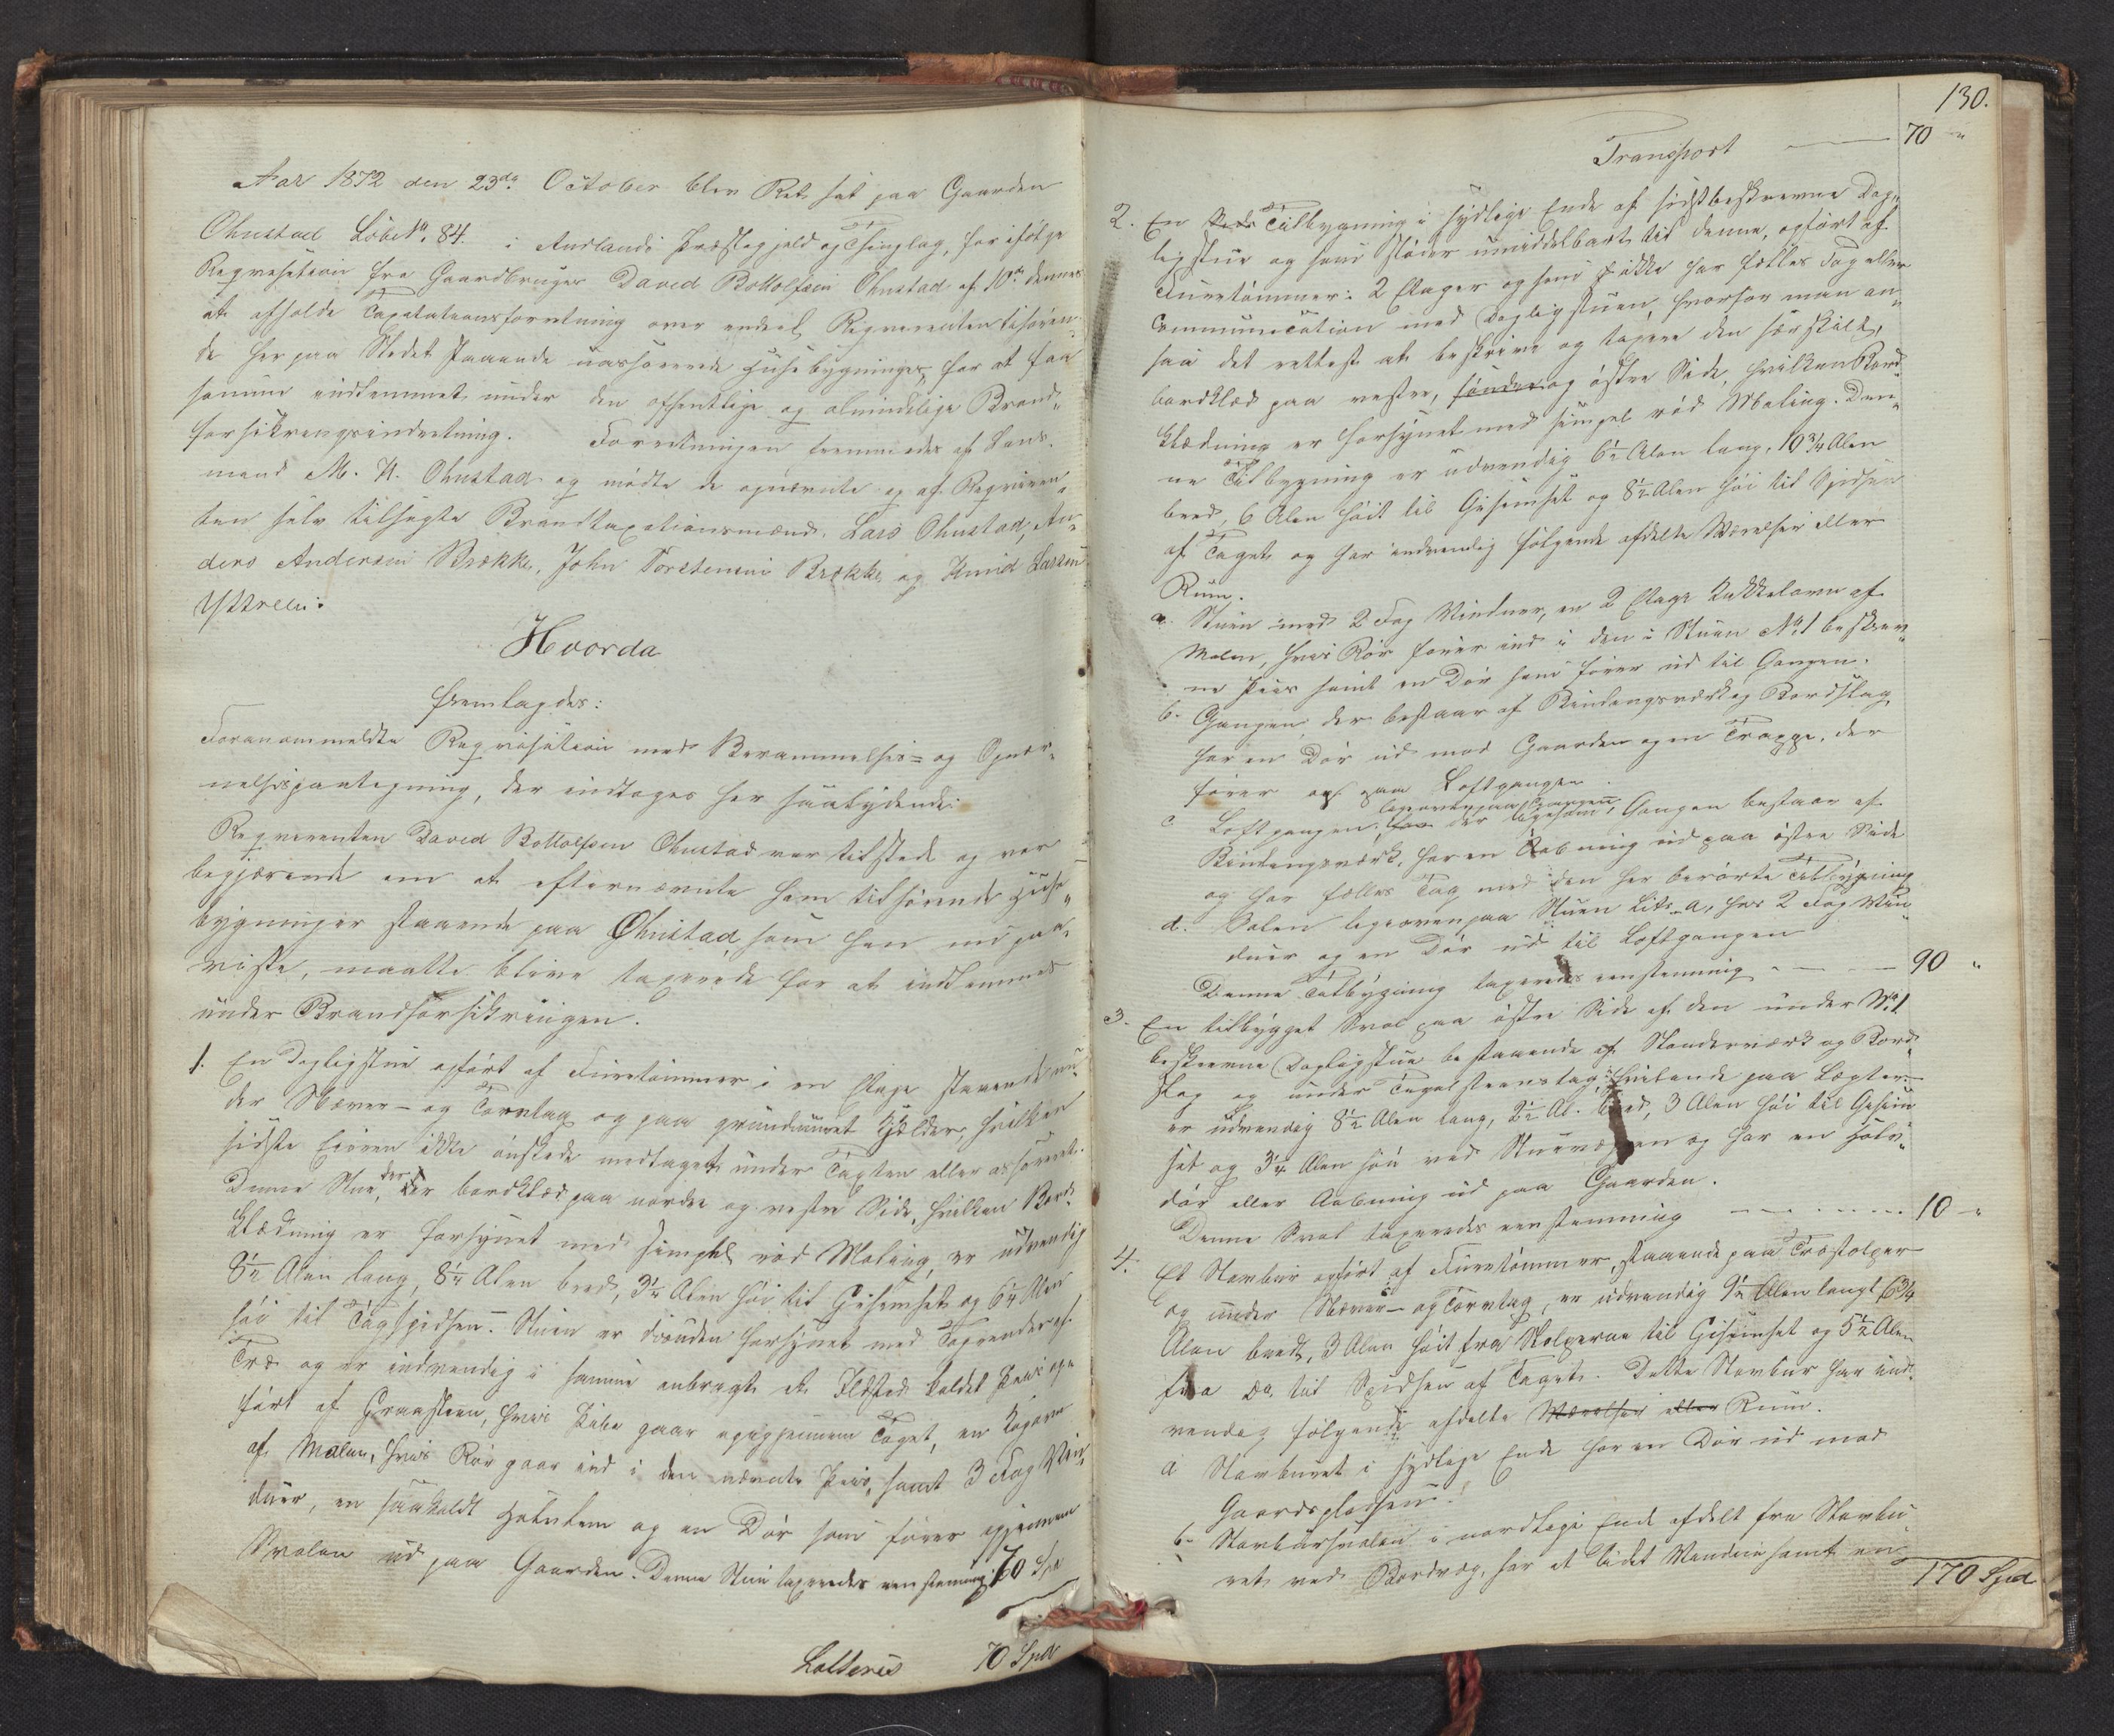 Aar 1872 den 23de October blev Ret sat paa Gaarden
Ohnstad Løbe No 84. i Aurlands Præstegjeld og Thinglag, for ifølge
Reqvisition fra Gaardbruger David Bottolfsen Ohnstad af 10de dennes
at afholde Taxatationsforretning over endeel Reqvirenten tilhøren-
de her paa Stedet staaende uassurerede Husebygninger, for at faa
samme indlemmet under den offentlige og almindelige Brand-
forsikringsindretning. Forretningen fremmedes af Lens-
mand M. N. Ohnstad og mødte de opnævnte og af Reqviren-
ten selv tilsagte Brandtaxationsmænd. Lars Ohnstad, An-
ders Andersen Brække, John Torstensen Brække og Knud Larsen
Yttreli:
Hvorda
fremlagdes:
Foranommeldte Reqvisition med Berammelses- og Opnæv-
nelsespaategning, der indtages her saalydende:
Reqvirenten David Bottolfsen Ohnstad var tilstede og var
begjærende om at efternævnte ham tilhørende Huse-
bygninger staaende paa Ohnstad som han nu paa-
viste, maatte blive taxerede for at indlemmes
under Brandforsikringen.
1. En Dagligstue opført af Furretømmer i en Etage staaende un-
der Næver- og Torvtag og paa grundmuret Kjælder, hvilken
sidste Eieren ikke ønskede medtaget under Taxten eller assureret.
Denne Stue, der er bordklæd paa nordre og vestre Side, hvilken Bord-
klædning er forsynet med simpel rød Maling, er udvendig
8½ Alen lang, 8½ Alen bred, 3½ Alen høi til Gesimset og 6¼ Alen
høi til Tagspidsen. Stuen er desuden forsynet med Tagrender af
Træ og er indvendig i samme anbragt et Ildsted kaldet Peis op-
ført af Graasteen, hvis Pibe gaar op igjennem Taget, en Kogovn
af Malm, hvis Rør gaar ind i den nævnte Peis, samt 3 Fag Vin-
duer, en saakaldt Halvlem og en Dør som fører igjennem
Svalen ud paa Gaarden. Denne Stue taxeredes eenstemmig: 70 Spd
Latteris 70 Spd
130.
Transport 70 "
2. En Tilbygning i sydlige Ende af sidstbeskrevne Dag-
ligstue og som støder umiddelbart til denne, opført af
Furretømmer i 2 Etager og som ikke har fælles Tag eller
Communication med Dagligstuen, hvorfor man an-
saa det rettest at beskrive og taxere den særskilt,
bordklæd paa vestre, søndre og østre Side, hvilken Bord-
klædning er forsynet med simpel rød Maling. Den-
ne Tilbygning er udvendig 6½ Alen lang, 10¾ Alen
bred, 6 Alen høit til Gesimset og 8½ Alen høi til Spidsen
af Taget og har indvendig følgende afdelte Værelser eller
Rum.
a. Stuen med 2 Fag Vinduer, en 2 Etage Kakkelovn af
Malm, hvis Rør fører ind i den i Stuen No 1 beskrev-
ne Peis samt en Dør som fører ud til Gangen.
b. Gangen der bestaar af Bindingsværk og Bordslag
har en Dør ud mod Gaarden og en Trappe, der
fører op paa Loftgangen.
c Loftgangen ligeoverpaa Gangen, der ligesom Gangen bestaar af
Bindingsværk, har en Aabning ud paa østre Side
og har fælles Tag med den her berørte Tilbygning
d. Salen ligeovenpaa Stuen Litr. a, har 2 Fag Vin-
duer og en Dør ud til Loftgangen
Denne Tilbygning taxeredes eenstemmig 90 "
3. En tilbygget Sval paa østre Side af den under No 1
beskrevne Dagligstue bestaaende af Standerværk og Bord-
slag og under Tegelsteenstag, hvilende paa Lægter
er udvendig 8½ Alen lang, 2½ Al. bred, 3 Alen høi til Gesim-
set og 3¼ Alen høi ved Stuevæggen og har en Halv-
dør eller Aabning ud paa Gaarden.
Denne Sval taxeredes eenstemmig 10 "
4. Et Stavbur opført af Furretømmer, staaende paa Træstolper
og under Næver- og Torvtag, er udvendig 9½ Alen langt, 6¾
Alen bredt, 3 Alen høit fra Stolperne til Gesimset og 5½ Alen
fra Do. til Spidsen af Taget. Dette Stavbur har ind-
vendig følgende afdelte Værelser eller Rum.
a Stavburet i sydlige Ende har en Dør ud mod
Gaardspladsen.
b. Stavbursvalen i nordlige Ende afdelt fra Stavbu-
ret ved Bordvæg, har et lidet Vindue samt en
170 Spd